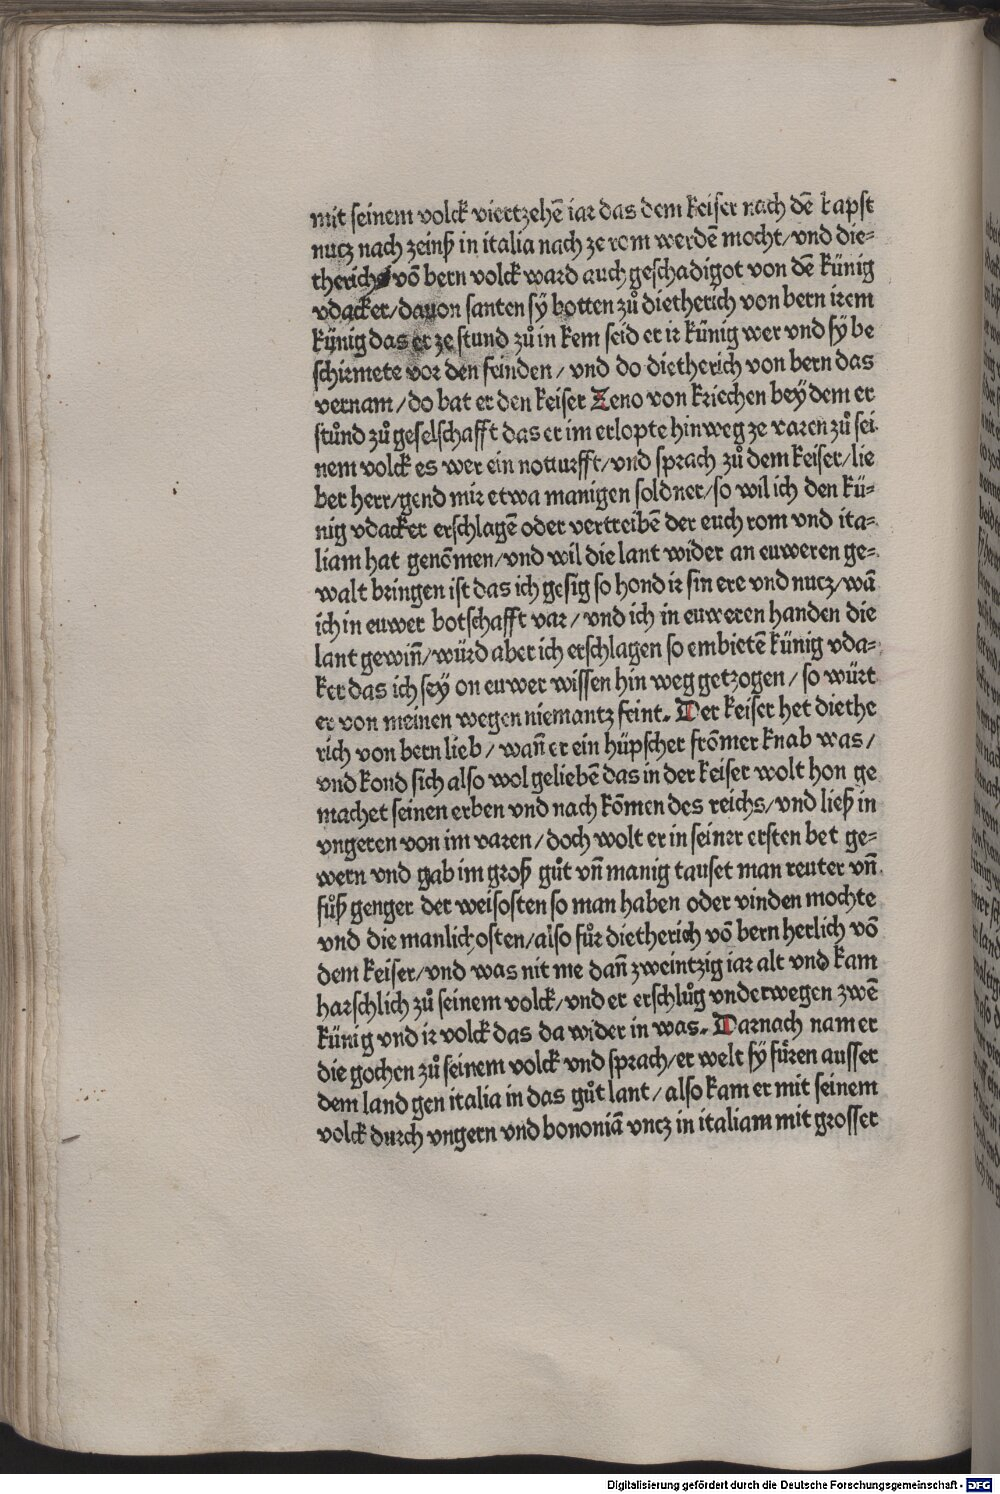 mit seinem volck viertzehē iar das dem keiser nach dē bapst
nucz nach zeinß in italia nach ze rom werdē mocht/vnd die⸗
therichs vō bern volck ward auch geschadigot von dē künig
vdacker/dauon santen sÿ botten zů dietherich von bern irem
künig das er ze stund zů in kem seid er ir künig wer vnd sÿ be
schirmete vor den feinden/ vnd do dietherich von bern das
vernam/do bat er den keiser Zeno von kriechen beÿ dem er
stůnd zů geselschafft das er im erlopte hinweg ze varen zů sei⸗
nem volck es wer ein notturfft/vnd sprach zů dem keiser/lie
ber herr/gend mir etwa manigen soldner/so wil ich den kü⸗
nig vdacker erschlagē oder vertreibē der euch rom vnd ita⸗
liam hat genōmen/vnd wil die lant wider an euweren ge⸗
walt bringen ist das ich gesig so hond ir sin ere vnd nucz/wā
ich in euwer botschafft var/ vnd ich in euweren handen die
lant gewiñ/würd aber ich erschlagen so embietē künig vda⸗
ker das ich seÿ on euwer wissen hin weg getzogen/ so würt
er von meinen wegen niemantz feint. Der keiser het diethe
rich von bern lieb/ wañ er ein hüpscher frōmer knab was/
vnd kond sich also wol geliebē das in der keiser wolt hon ge
machet seinen erben vnd nach kōmen des reichs/vnd ließ in
vngeren von im varen/doch wolt er in seiner ersten bet ge⸗
wern vnd gab im groß gůt vñ manig tauset man reuter vñ
fůß genger der weisosten so man haben oder vinden mochte
vnd die manlichosten/also fůr dietherich vō bern herlich vō
dem keiser/vnd was nit me dañ zweintzig iar alt vnd kam
harschlich zů seinem volck/vnd er erschlůg vnderwegen zwē
künig vnd ir volck das da wider in was. Darnach nam er
die gochen zů seinem volck vnd sprach/er welt sÿ fůren ausser
dem land gen italia in das gůt lant/also kam er mit seinem
volck durch vngern vnd bononiā vncz in italiam mit grosser
Digitalisierung gefördert durch die Deutsche Forschungsgemeinschaft - DFG